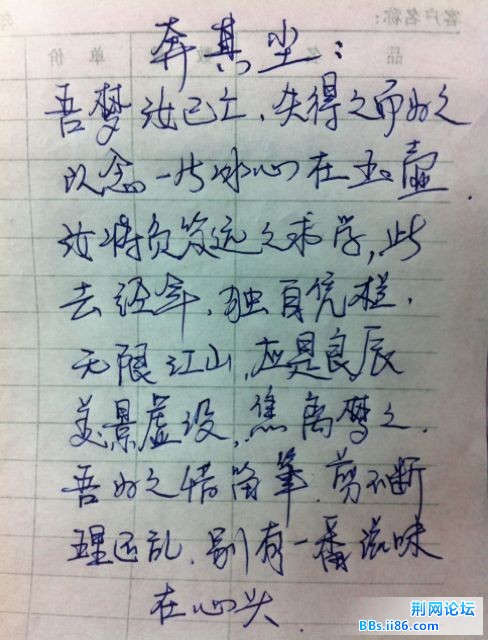 客户名称:
品 名 数 单价
奔其尘:
吾梦汝已亡,失得之而如之
以念一片冰心在玉壶.
汝将负笈远之求学,此
去经年,独自凭栏,
无限江山,应是良辰
美景虚设,焦离梦之.
吾如之情笛笔,剪不断
理还乱,别有一番滋味
在心头.
荆网论坛
BBs.ii86.com